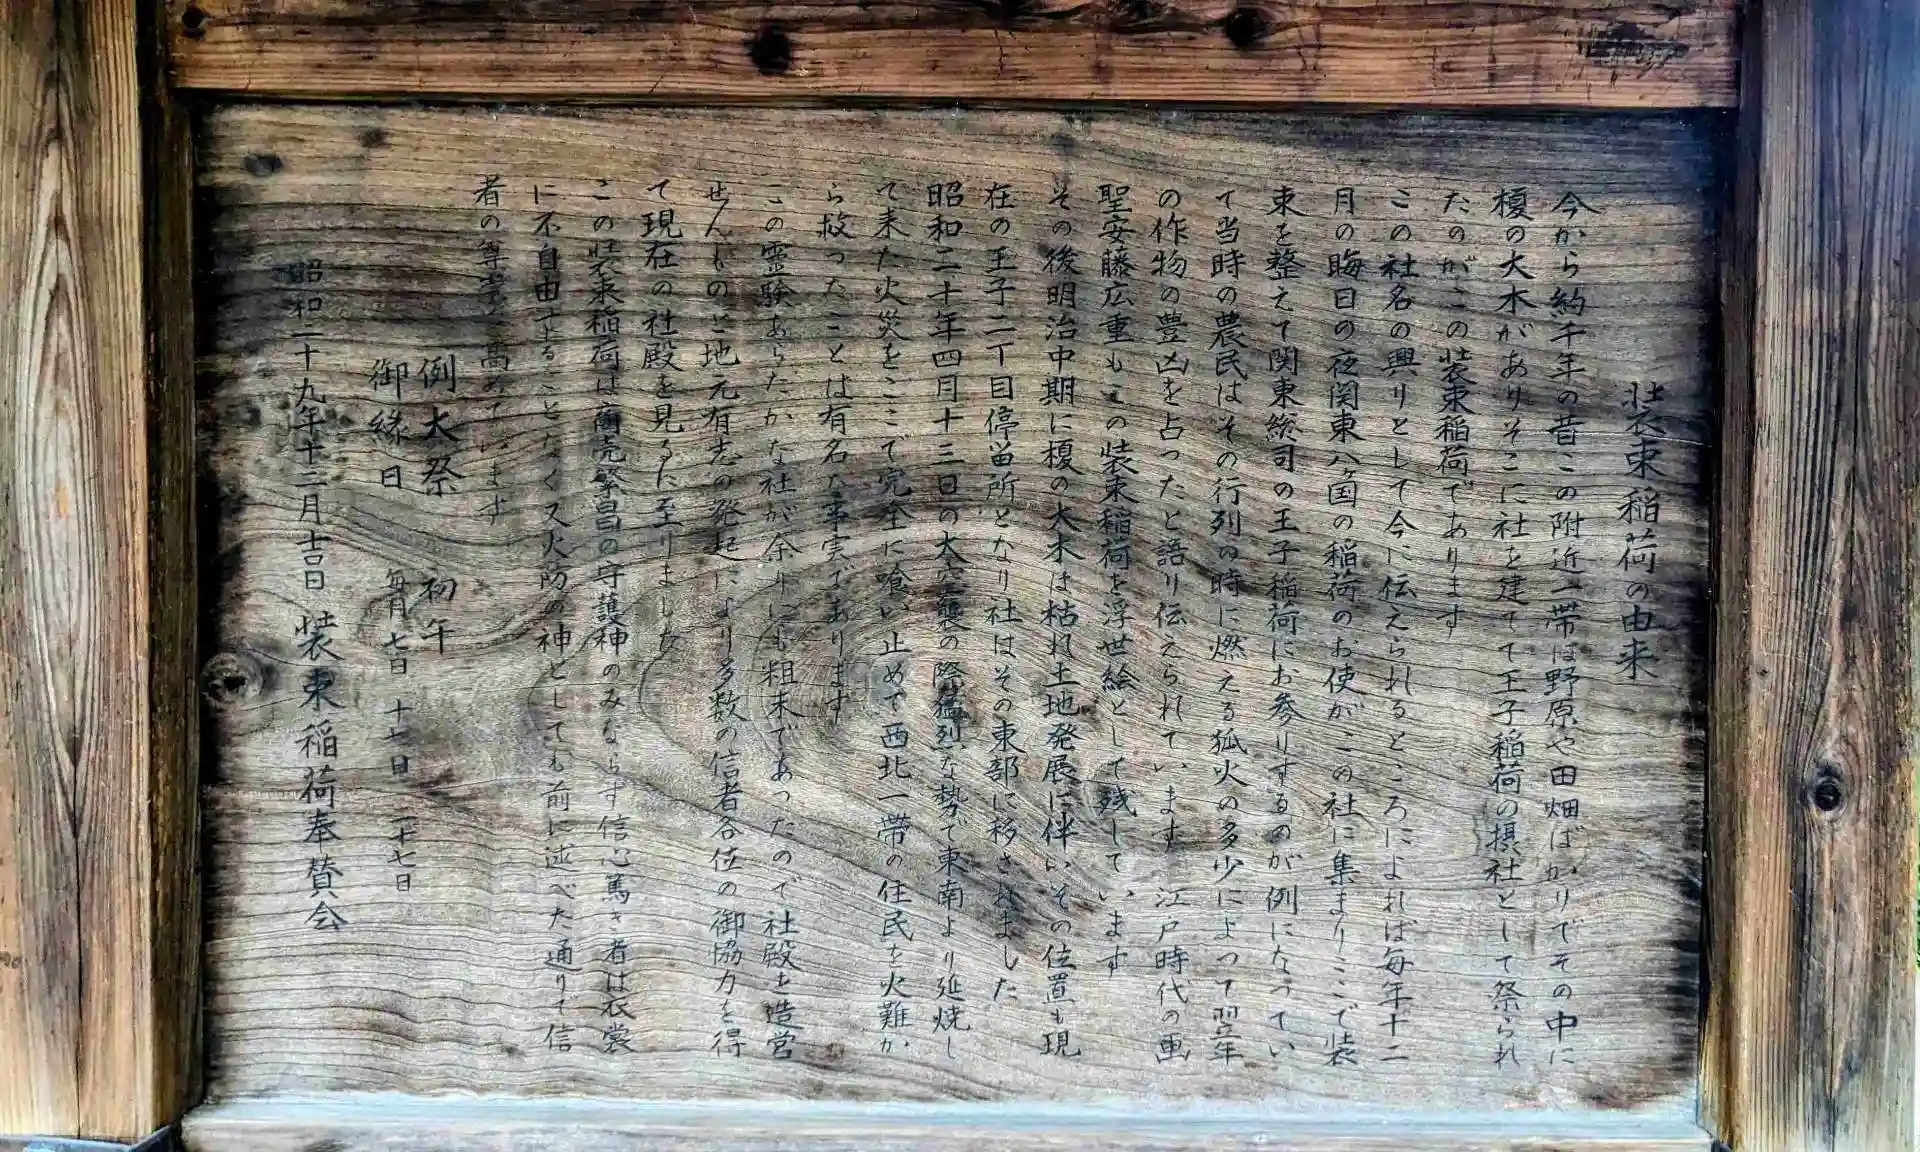 装束稲荷の由来
今から約千年の昔この附近一帯は野原や田畑ばかりでその中に
榎の大木がありそこに社を建てて王子稲荷の摂社として祭られ
たのがこの装束稲荷であります
この社名の興りとして今に伝えられるところによれば毎年十二
月の晦日の夜関東八ケ国の稲荷のお使がこの社に集まりここで装
束を整えて関東総司の王子稲荷にお参りするのが例になってい
て当時の農民はその行列の時に燃える狐火の多少によって翌年
の作物の豊凶を占ったと語り伝えられています 江戸時代の画
聖安藤広重もこの装束稲荷を浮世絵として残しています
その後明治中期に榎の大木は枯れ土地発展に伴いその位置も現
在の王子二丁目停留所となり社はその東部に移されました
昭和二十年四月十三日の大空襲の際猛烈な勢で東南より延焼し
て来た火災をここで完全に喰い止めて西北一帯の住民を火難か
ら救ったことは有名な事実であります
この霊験あらたかな社が余りにも粗末であったので社殿を造営
せんものと地元有志の発起により多数の信者各位の御協力を得
て現在の社殿を見るに至りました
この装束稲荷は商売繁昌の守護神のみならず信心篤き者は衣裳
に不自由することなく又火防の神としても前に述べた通りで信
者の尊崇を高めています
例大祭 初午
御縁日 毎月 七日 十七日 二十七日
昭和二十九年十二月吉日 装束稲荷奉賛会